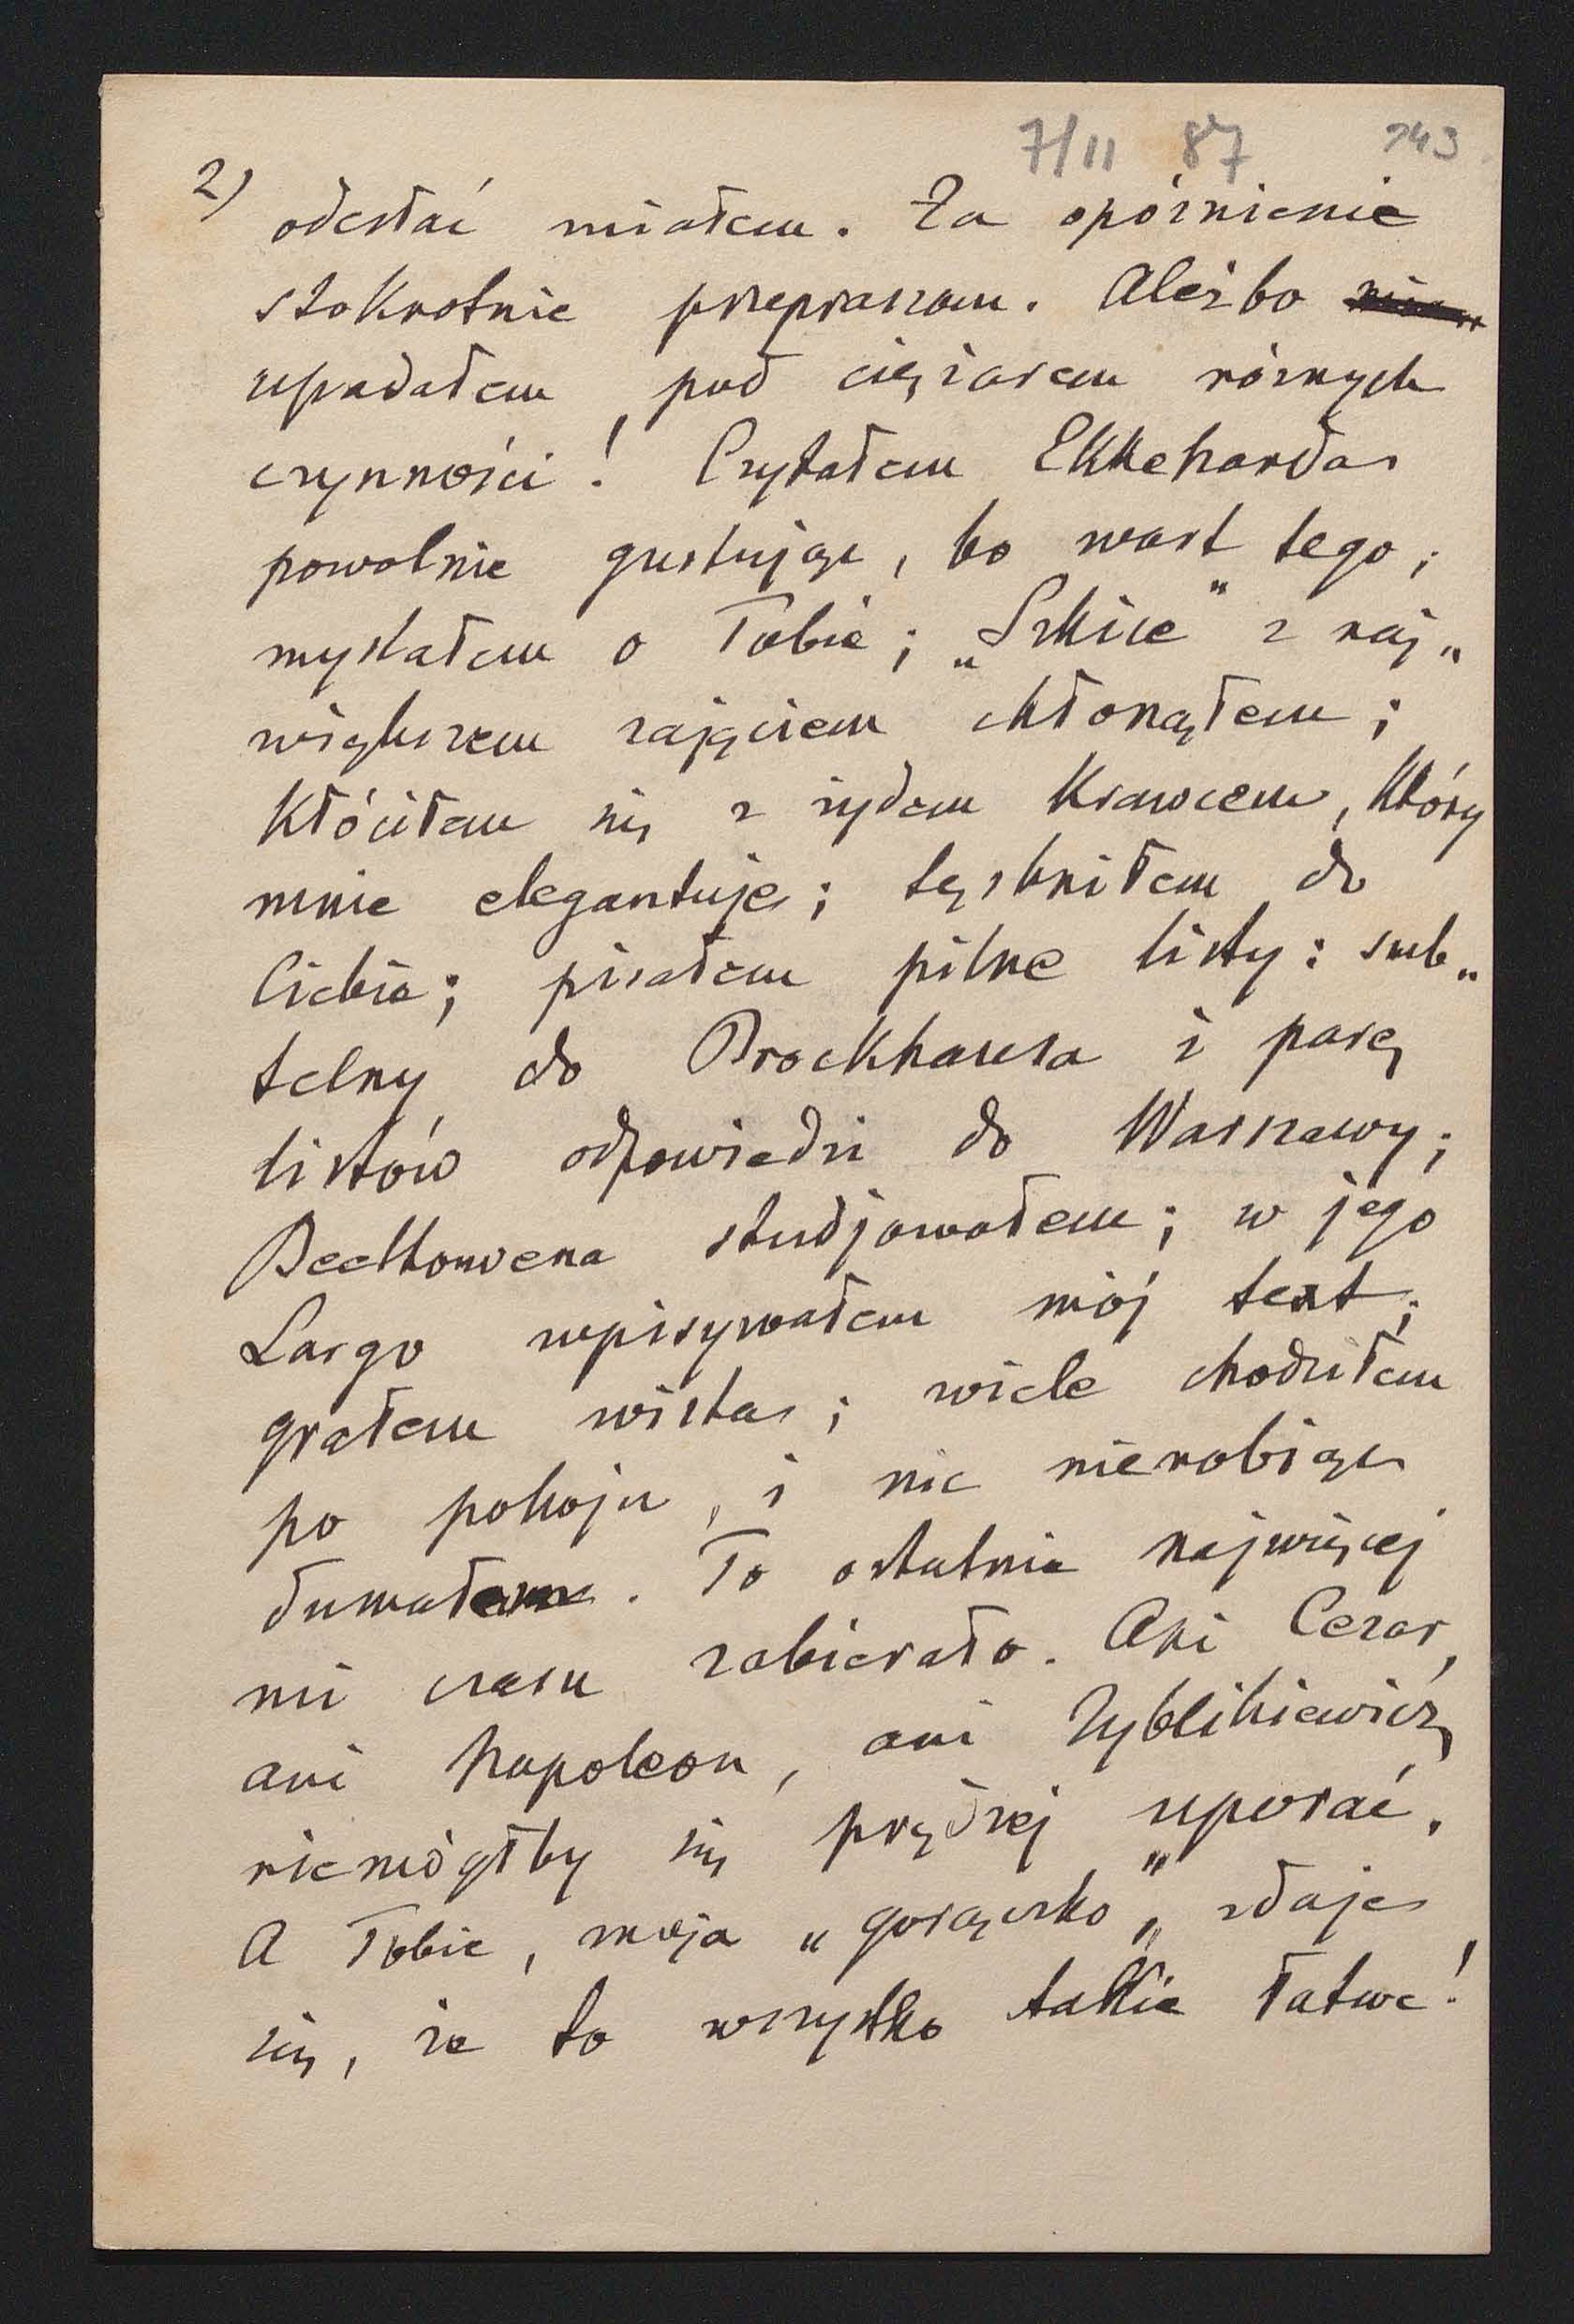 7/11 87 243
2) odesłać miałem. Za opóźnienie
stokrotnie przepraszam. Ależ bo
upadałem pod ciężarem różnych
czynności! Czytałem Ekkeharda
powolnie gustując, bo wart tego;
myślałem o Tobie; „Szkice" z naj„
większem zajęciem chłonąłem;
Kłóciłem się z żydem Krawcem, który
mnie elegantuje; tęskniłem do
Ciebie; pisałem pilne listy: sub„
telny do Brockhausa i parę
listów odpowiedzi do Warszawy;
Beethowena studjowałem; w jego
Largo wpisywałem mój text;
grałem wista; wiele chodziłem
po pokoju, i nic nierobiąc
dumałem. To ostatnie najwięcej
mi czasu zabierało. Ani Cezar,
ani Napoleon, ani Zyblikiewicz
niemógłby się prędzej uporać.
A Tobie, moja „gorączko„ zdaje
się, że to wszystko takie łatwe!